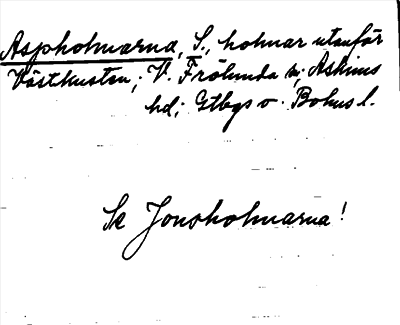 Aspholmarna, S., holmar utanför
Västkusten; V. Frölunda s; Askims
hd; Gtbgs o. Bohus l.
Se Jonsholmarna!